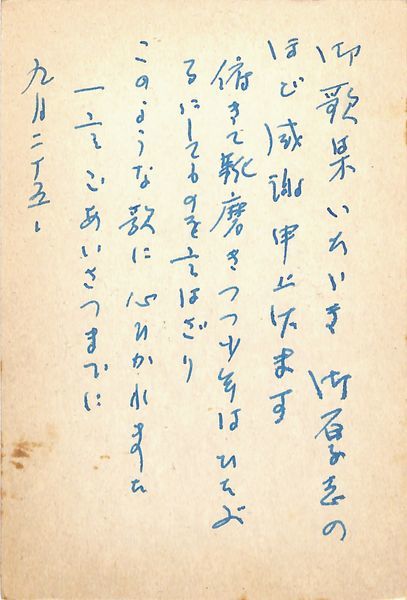 御歌集いたゞき 御厚志の
ほど感謝申上げます
俯きて靴磨きつつ少年はひたぶ
るにしてものを言はざり
このような歌に心ひかれました
一言ごあいさつまでに
九月二十五日